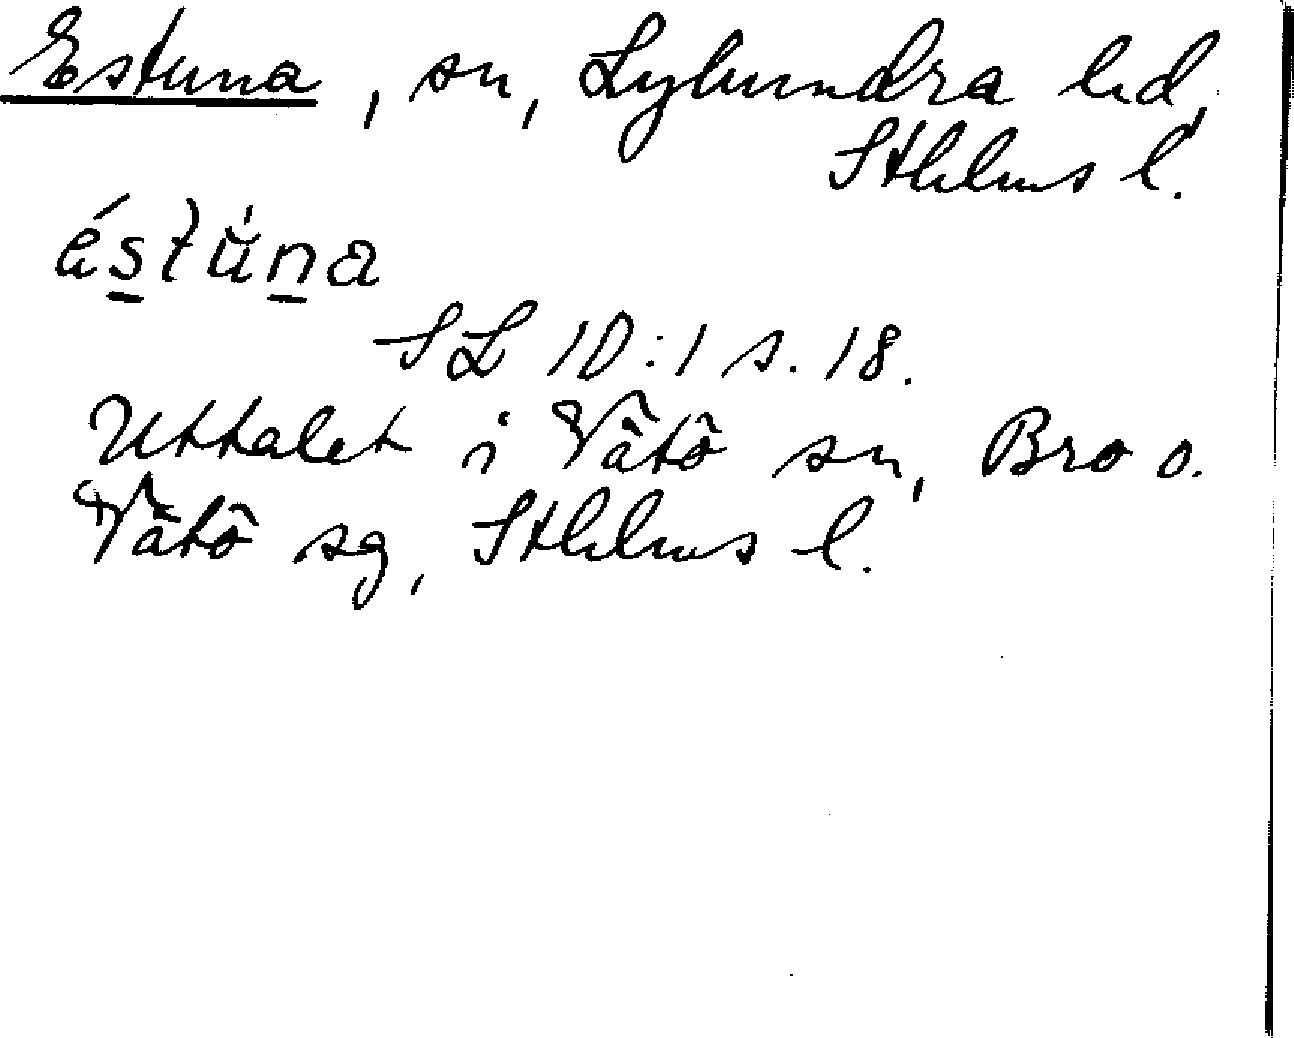 Estuna, sn, Lyhundra hd,
Sthlms l.
éstùna
SL 10:1 s. 18.
Uttalet i Vätö sn, Bro o.
Vätö sg, Sthlms l.